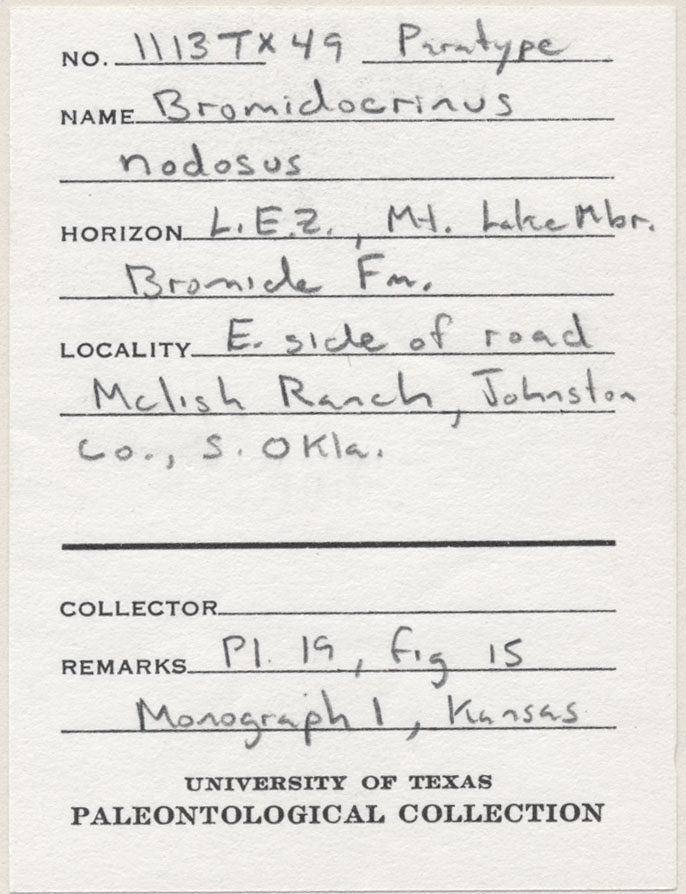 NO. 1113TX49 Paratype
NAME Bromidocrinus
nodosus
HORIZON L.E.Z., Mt. Lake Mbr.
Bromide Fm.
LOCALITY E. side of road
Mclish Ranch, Johnston
Co., S. Okla.
COLLECTOR
REMARKS Pl. 19, fig 15
Monograph 1, Kansas
UNIVERSITY OF TEXAS
PALEONTOLOGICAL COLLECTION